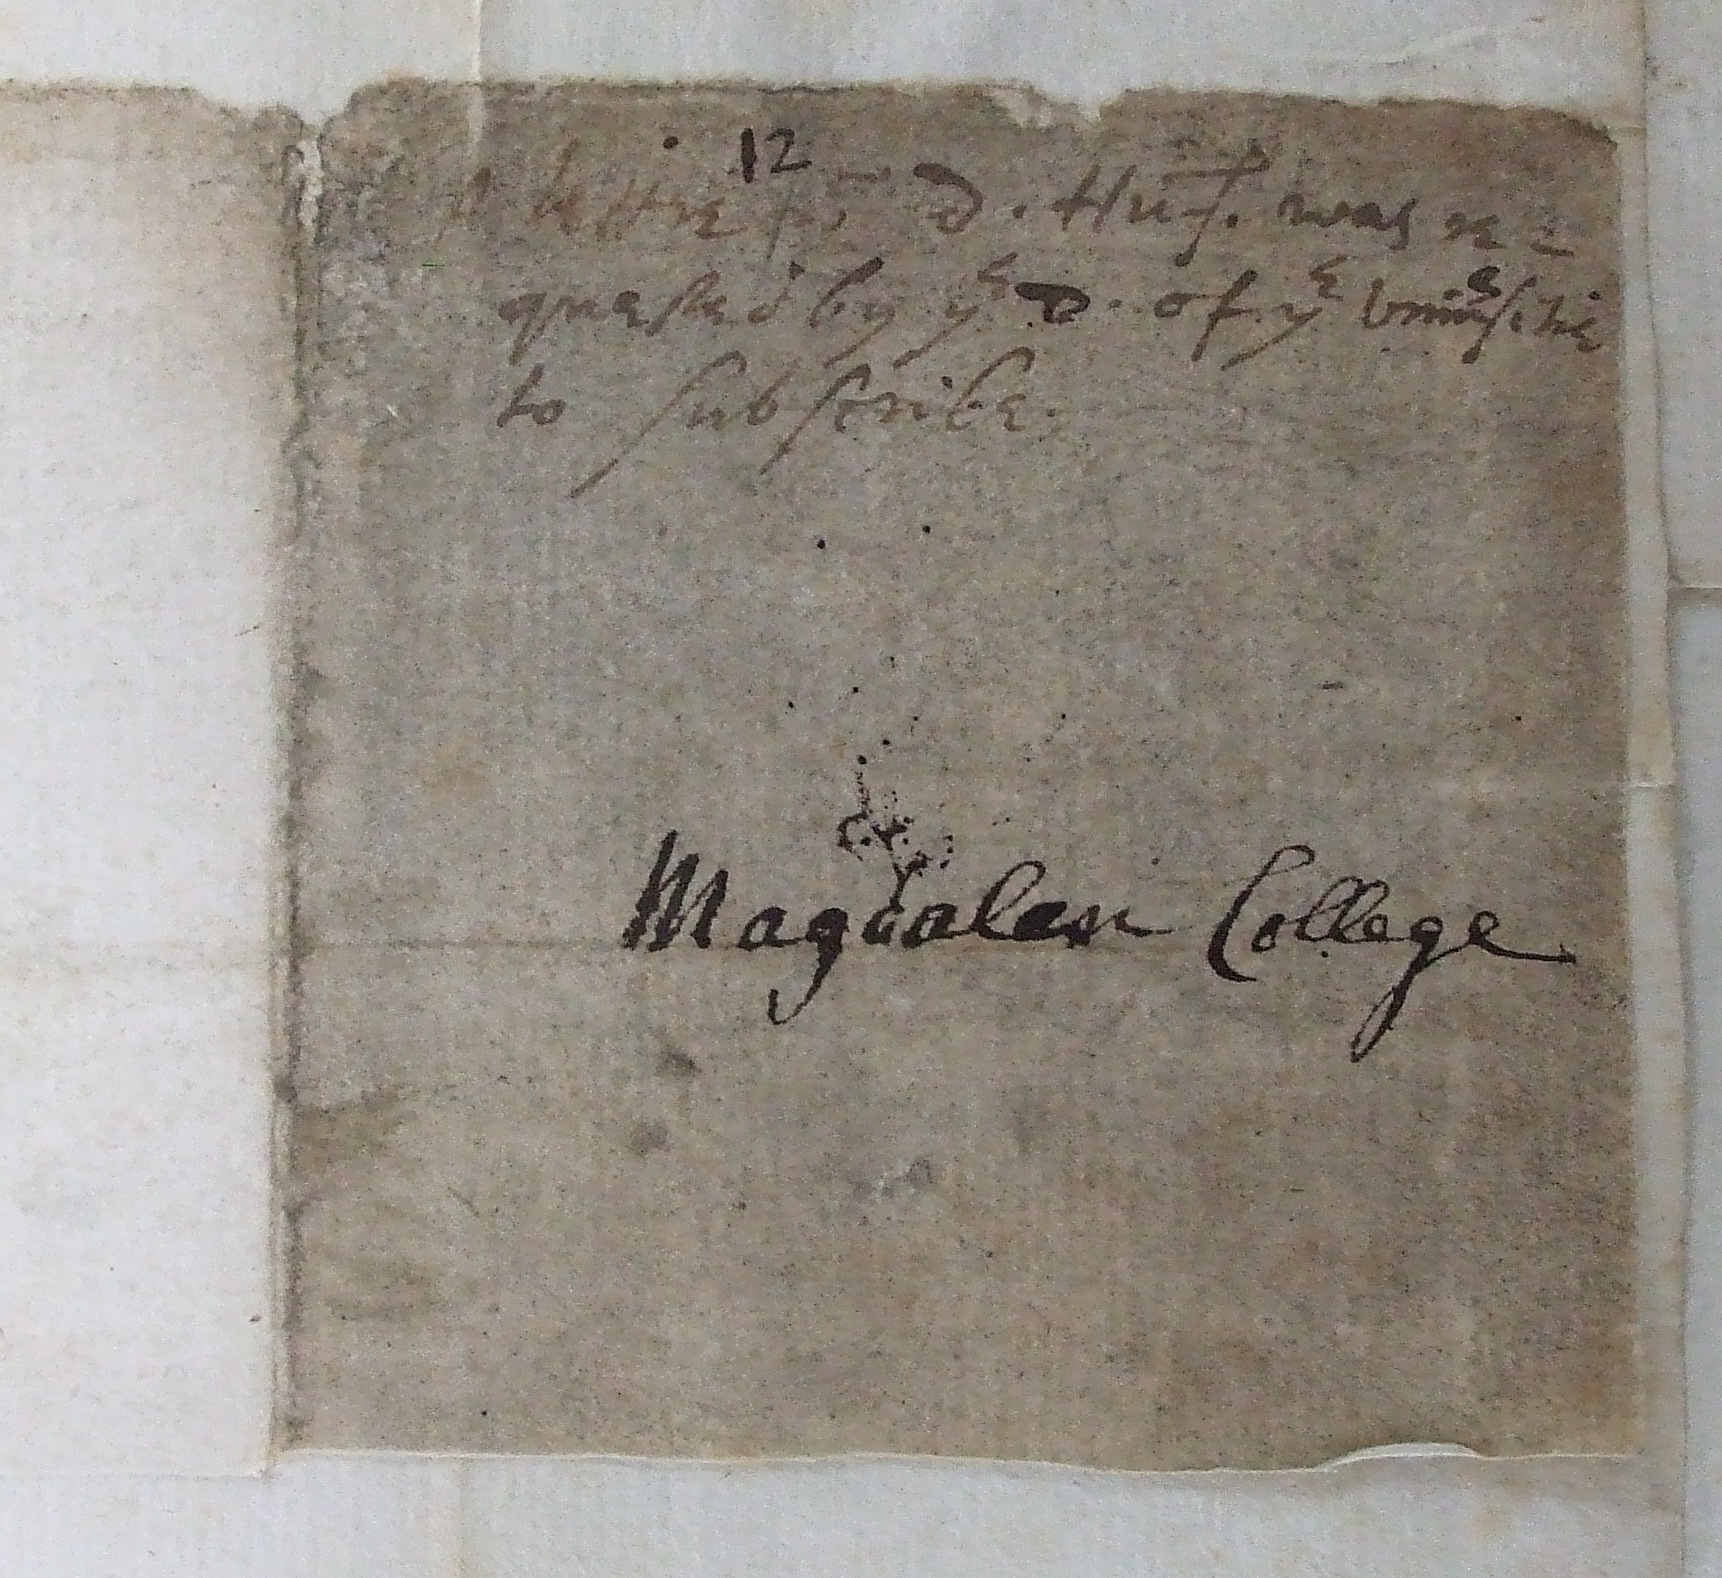 12
A lettre D. Huf. was re=
quested by yͤ D. of yͤ vniuͤsitie
to subscribe.
Magdalen College